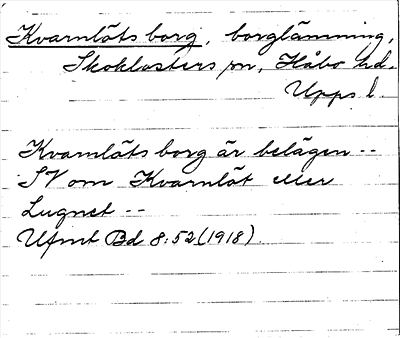 Kvarnlöts borg, borglämning,
Skoklosters sn, Håbo hd.
Upps. l.
Kvarnlöts borg är belägen --
SV om Kvarnlöt eller
Lugnet --
Ufmt Bd 8:52 (1918)